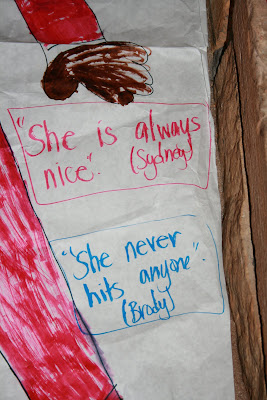 "She is always
nice". (Sydney)
"She never
hits anyone".
(Brody)